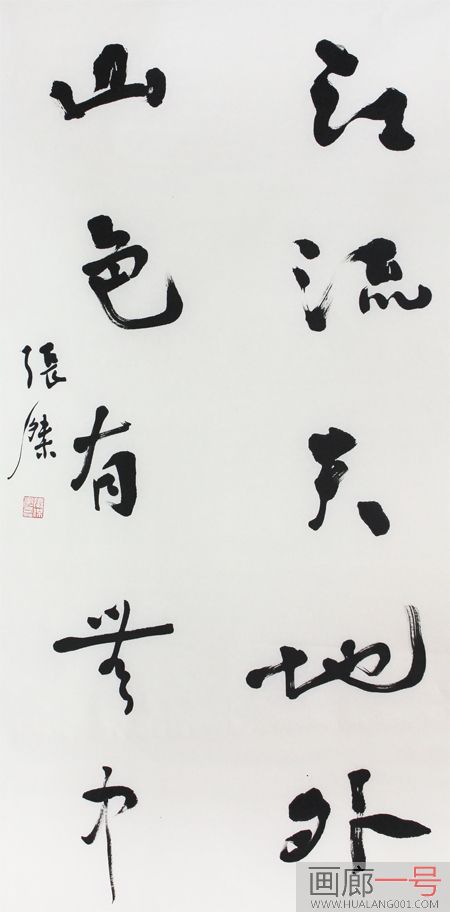 江流天地外
山色有無中
張傑
画廊一号
WWW.HUALANG001.COM